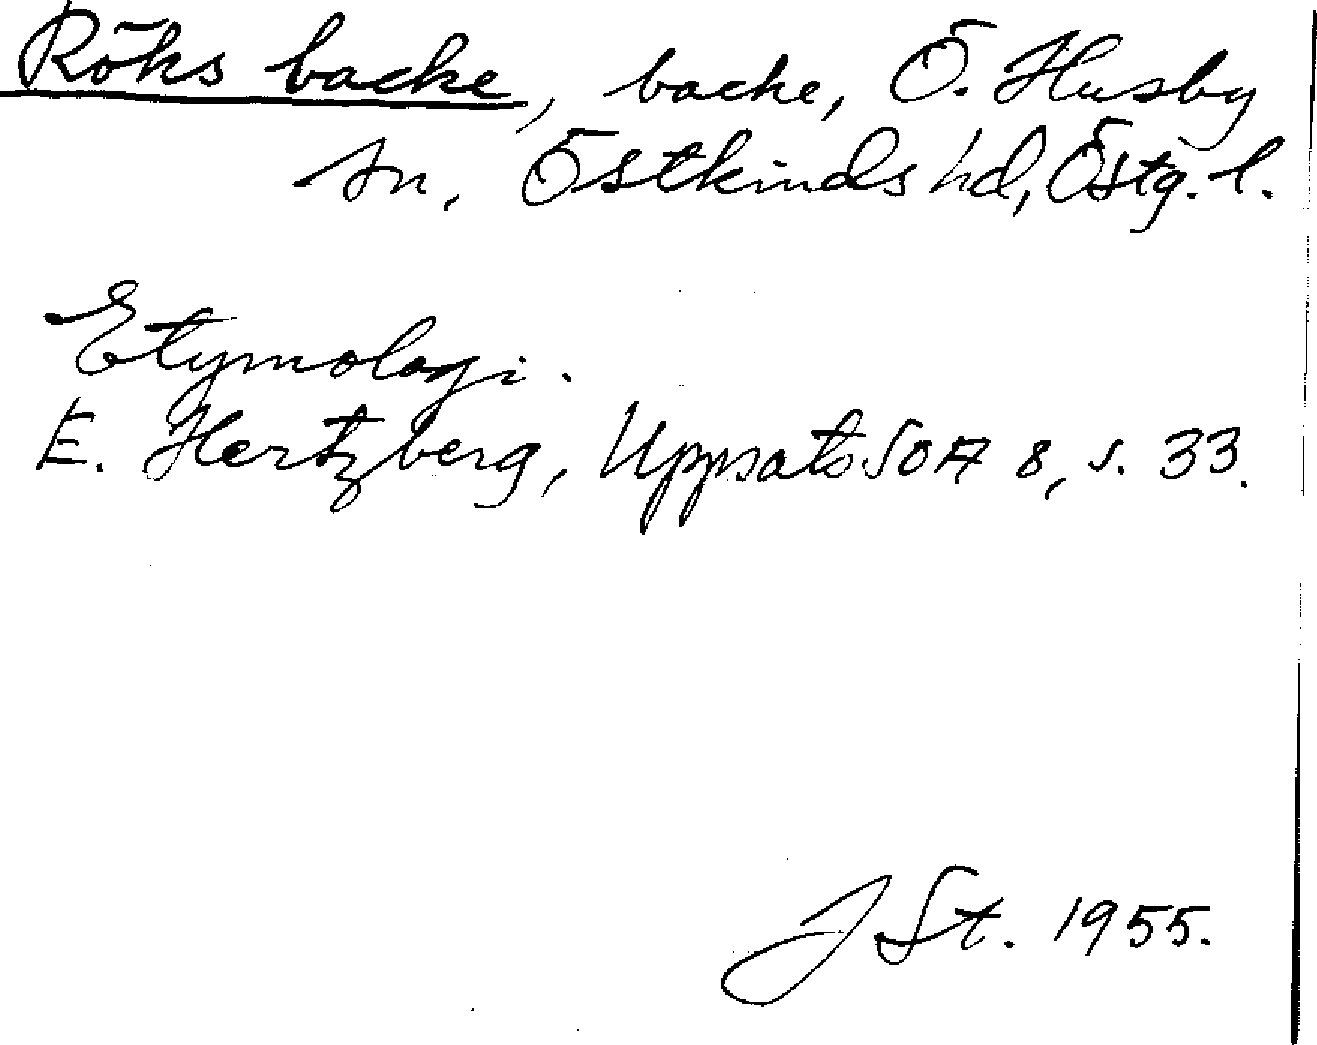 Röks backe, backe, Ö. Husby
sn, Östkinds hd, Östg. l.
Etymologi.
E. Hertzberg, Uppsats SOA 8, s. 33.
J St. 1955.